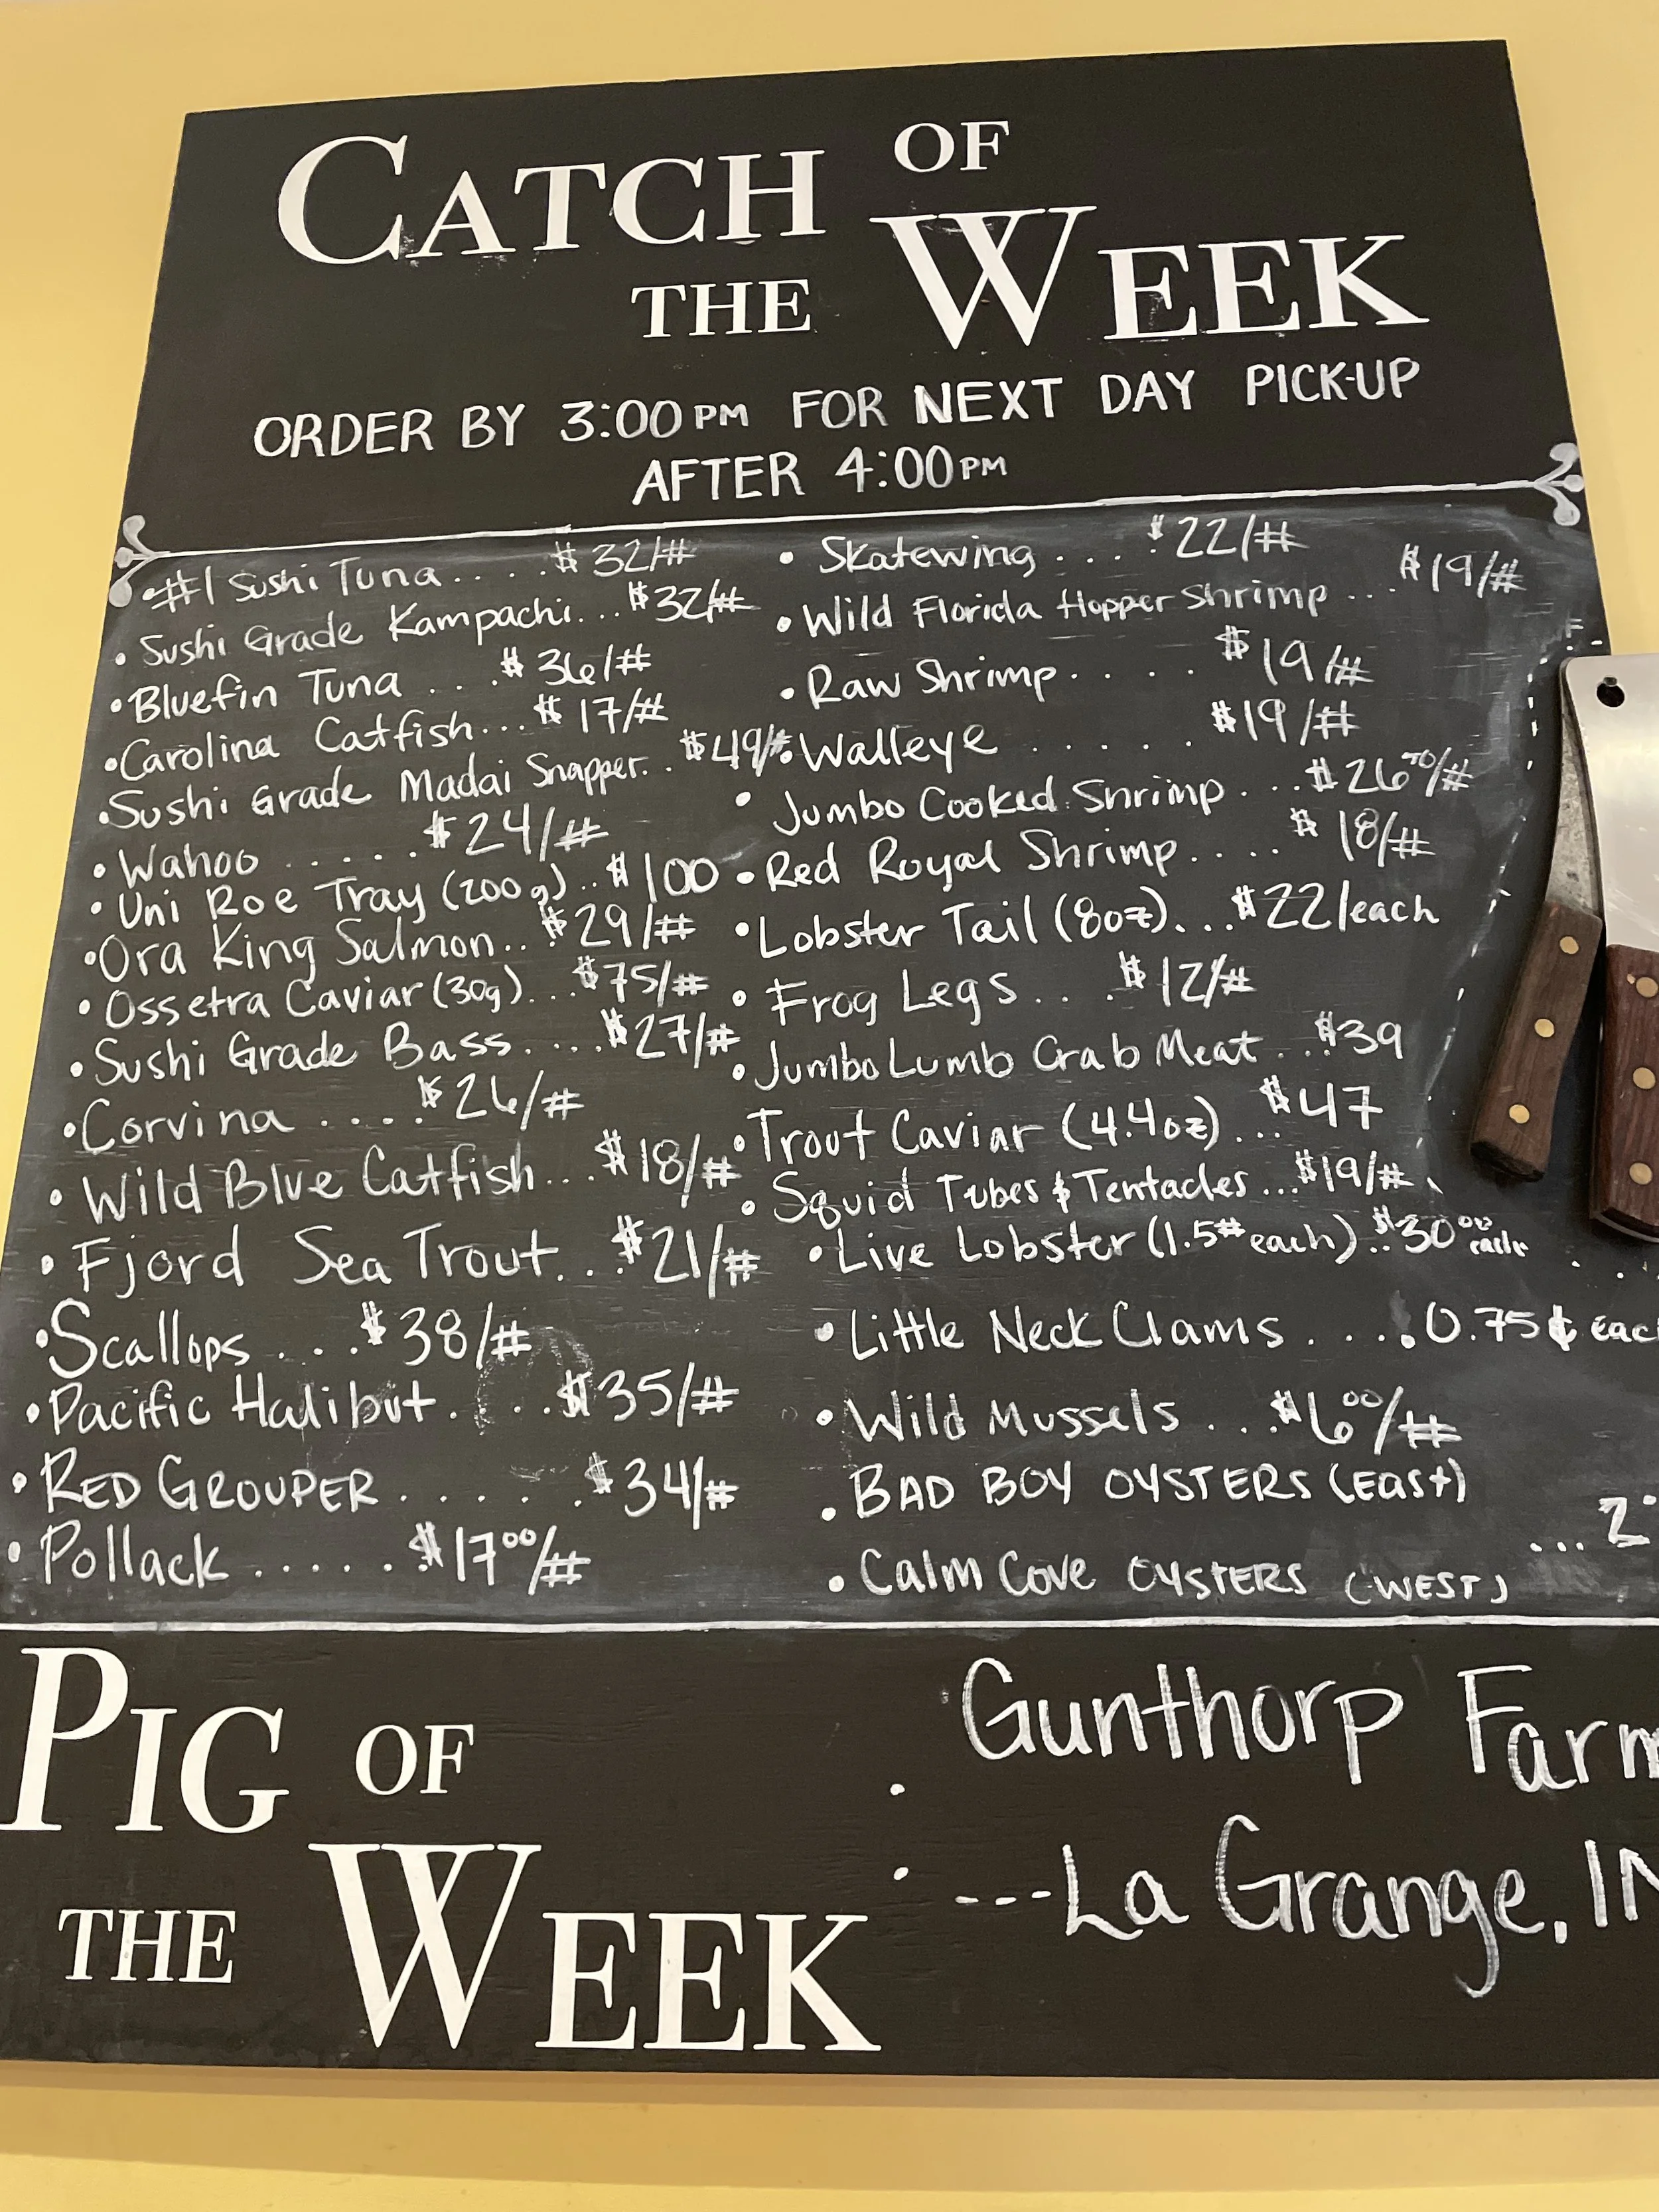 CATCH OF
THE WEEK
ORDER BY 3:00PM FOR NEXT DAY PICK-UP
AFTER 4:00PM
• #1 Sushi Tuna.....$32/#
• Sushi Grade Kampachi...$32/#
• Bluefin Tuna....$36/#
• Carolina Catfish...$17/#
• Sushi Grade Madai Snapper..$49/#
• Wahoo......$24/#
• Uni Roe Tray (200g)..$100
• Ora King Salmon..$29/#
• Ossetra Caviar (30g)...$75/#
• Sushi Grade Bass....$27/#
• Corvina....$26/#
• Wild Blue Catfish...$18/#
• Fjord Sea Trout...$21/#
• Scallops...$38/#
• Pacific Halibut...$35/#
• RED GROUPER......$34/#
• Pollack.....$17⁰⁰/#
• Skatewing....$22/#
• Wild Florida Hopper Shrimp...$19/#
• Raw Shrimp....$19/#
• Walleye.....$19/#
• Jumbo Cooked Shrimp...$26/#
• Red Royal Shrimp....$18/#
• Lobster Tail (8oz)...$22/each
• Frog Legs...$12/#
• Jumbo Lumb Crab Meat..$39
• Trout Caviar (4.4oz)...$47
• Squid Tubes & Tentacles...$19/#
• Live Lobster (1.5# each)..$30⁰⁰ each
• Little Neck Clams....0.75¢ eac
• Wild Mussels...$6⁰⁰/#
• BAD BOY OYSTERS (EAST)
...2
• Calm Cove OYSTERS (WEST)
PIG OF
THE WEEK
Gunthorp Farm
---La Grange, IN